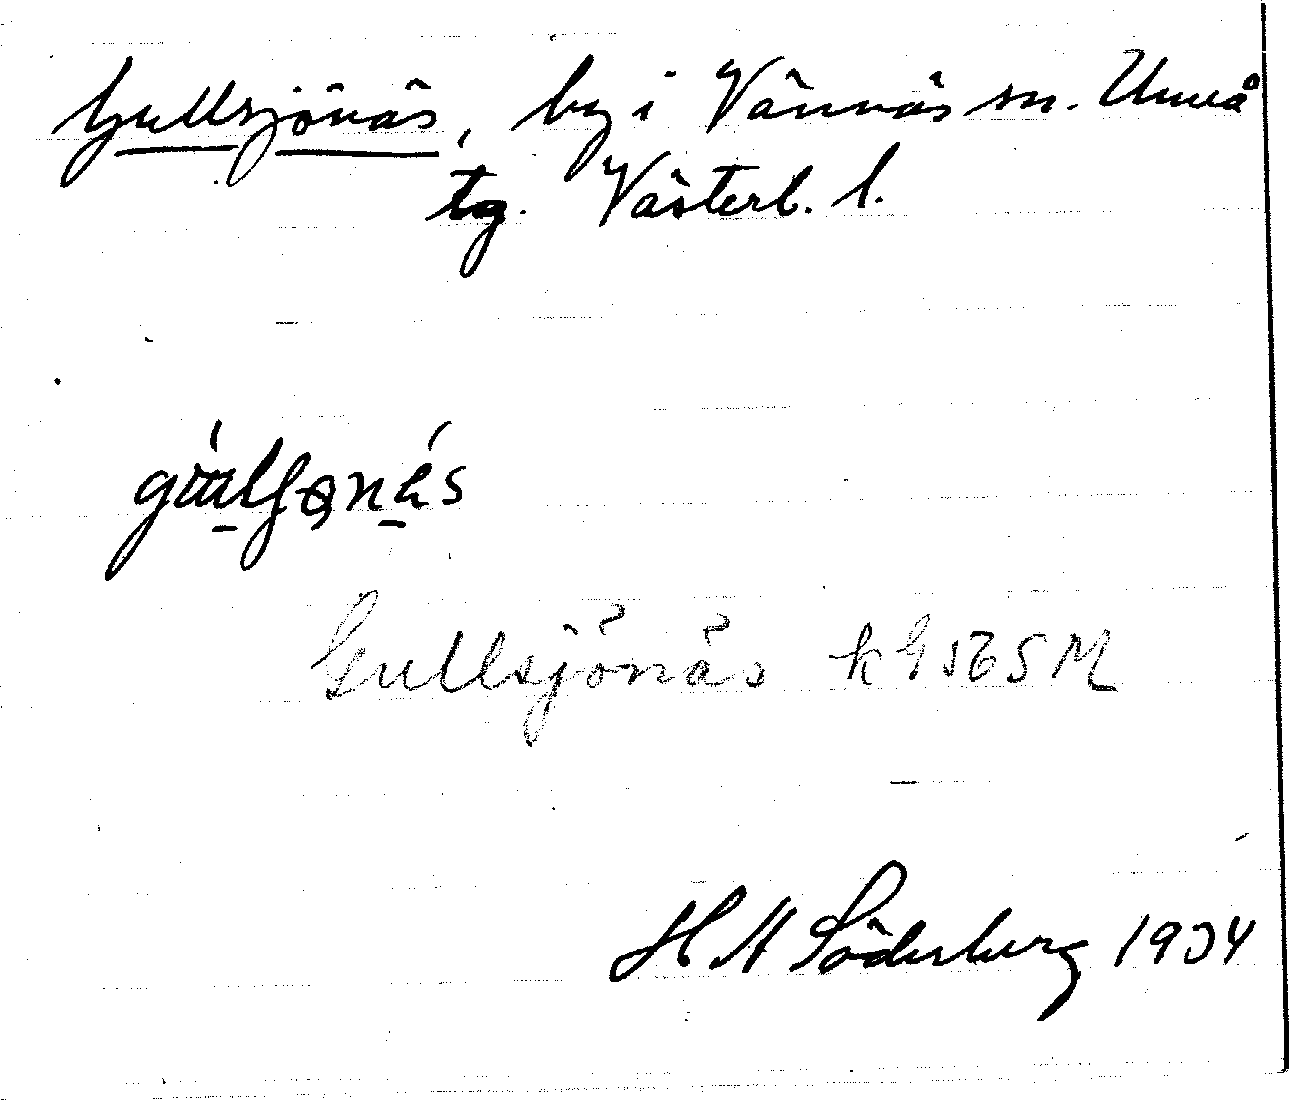 Gullsjönäs, by i Vännäs sn. Umeå
tg. Västerb. l.
Gullsjönäs k
H Söderberg 1934